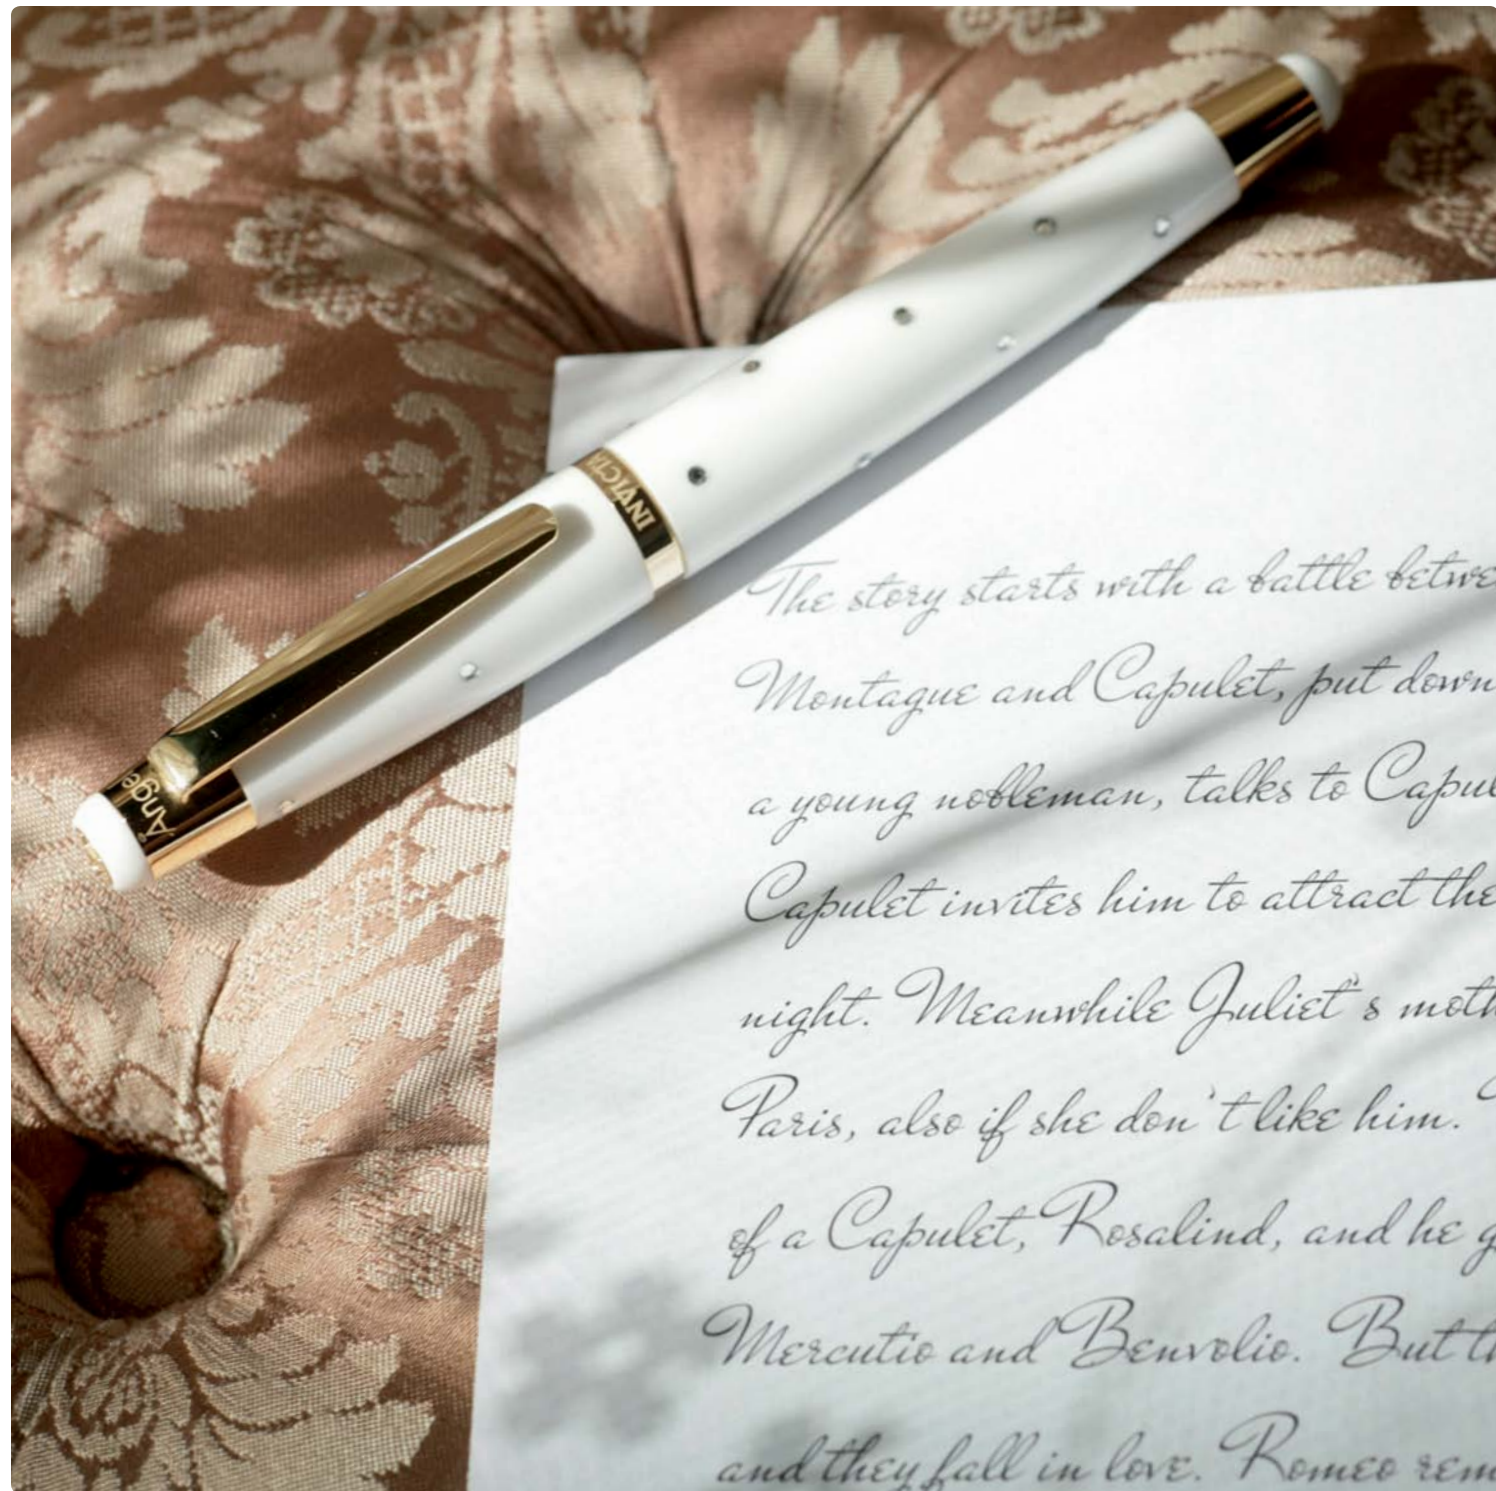 INVICTA
Ange
The story starts with a battle betwe
Montague and Capulet, put down
a young nobleman, talks to Capul
Capulet invites him to attract the
night. Meanwhile Juliet's moth
Paris, also if she don't like him.
of a Capulet, Rosalind, and he g
Mercutio and Benvolio. But th
and they fall in love. Romeo rem